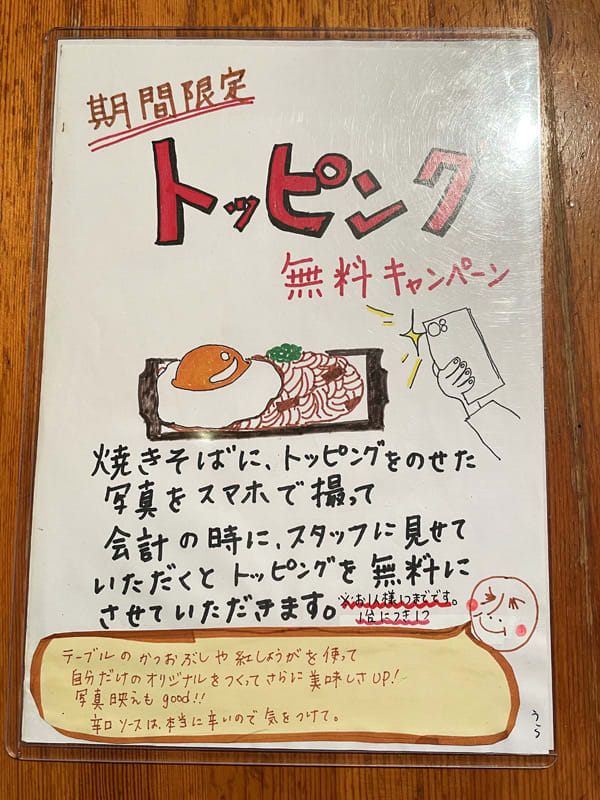 期間限定
トッピング
無料キャンペーン
焼きそばに、トッピングをのせた
写真をスマホで撮って
会計の時に、スタッフに見せて
いただくとトッピングを無料に
させていただきます。
※お1人様1つまでです。
1台につき1つ
テーブルのかつおぶしや紅しょうがを使って
自分だけのオリジナルをつくってさらに美味しさUP!
写真映えもgood!!
辛口ソースは、本当に辛いので気をつけて。
うら